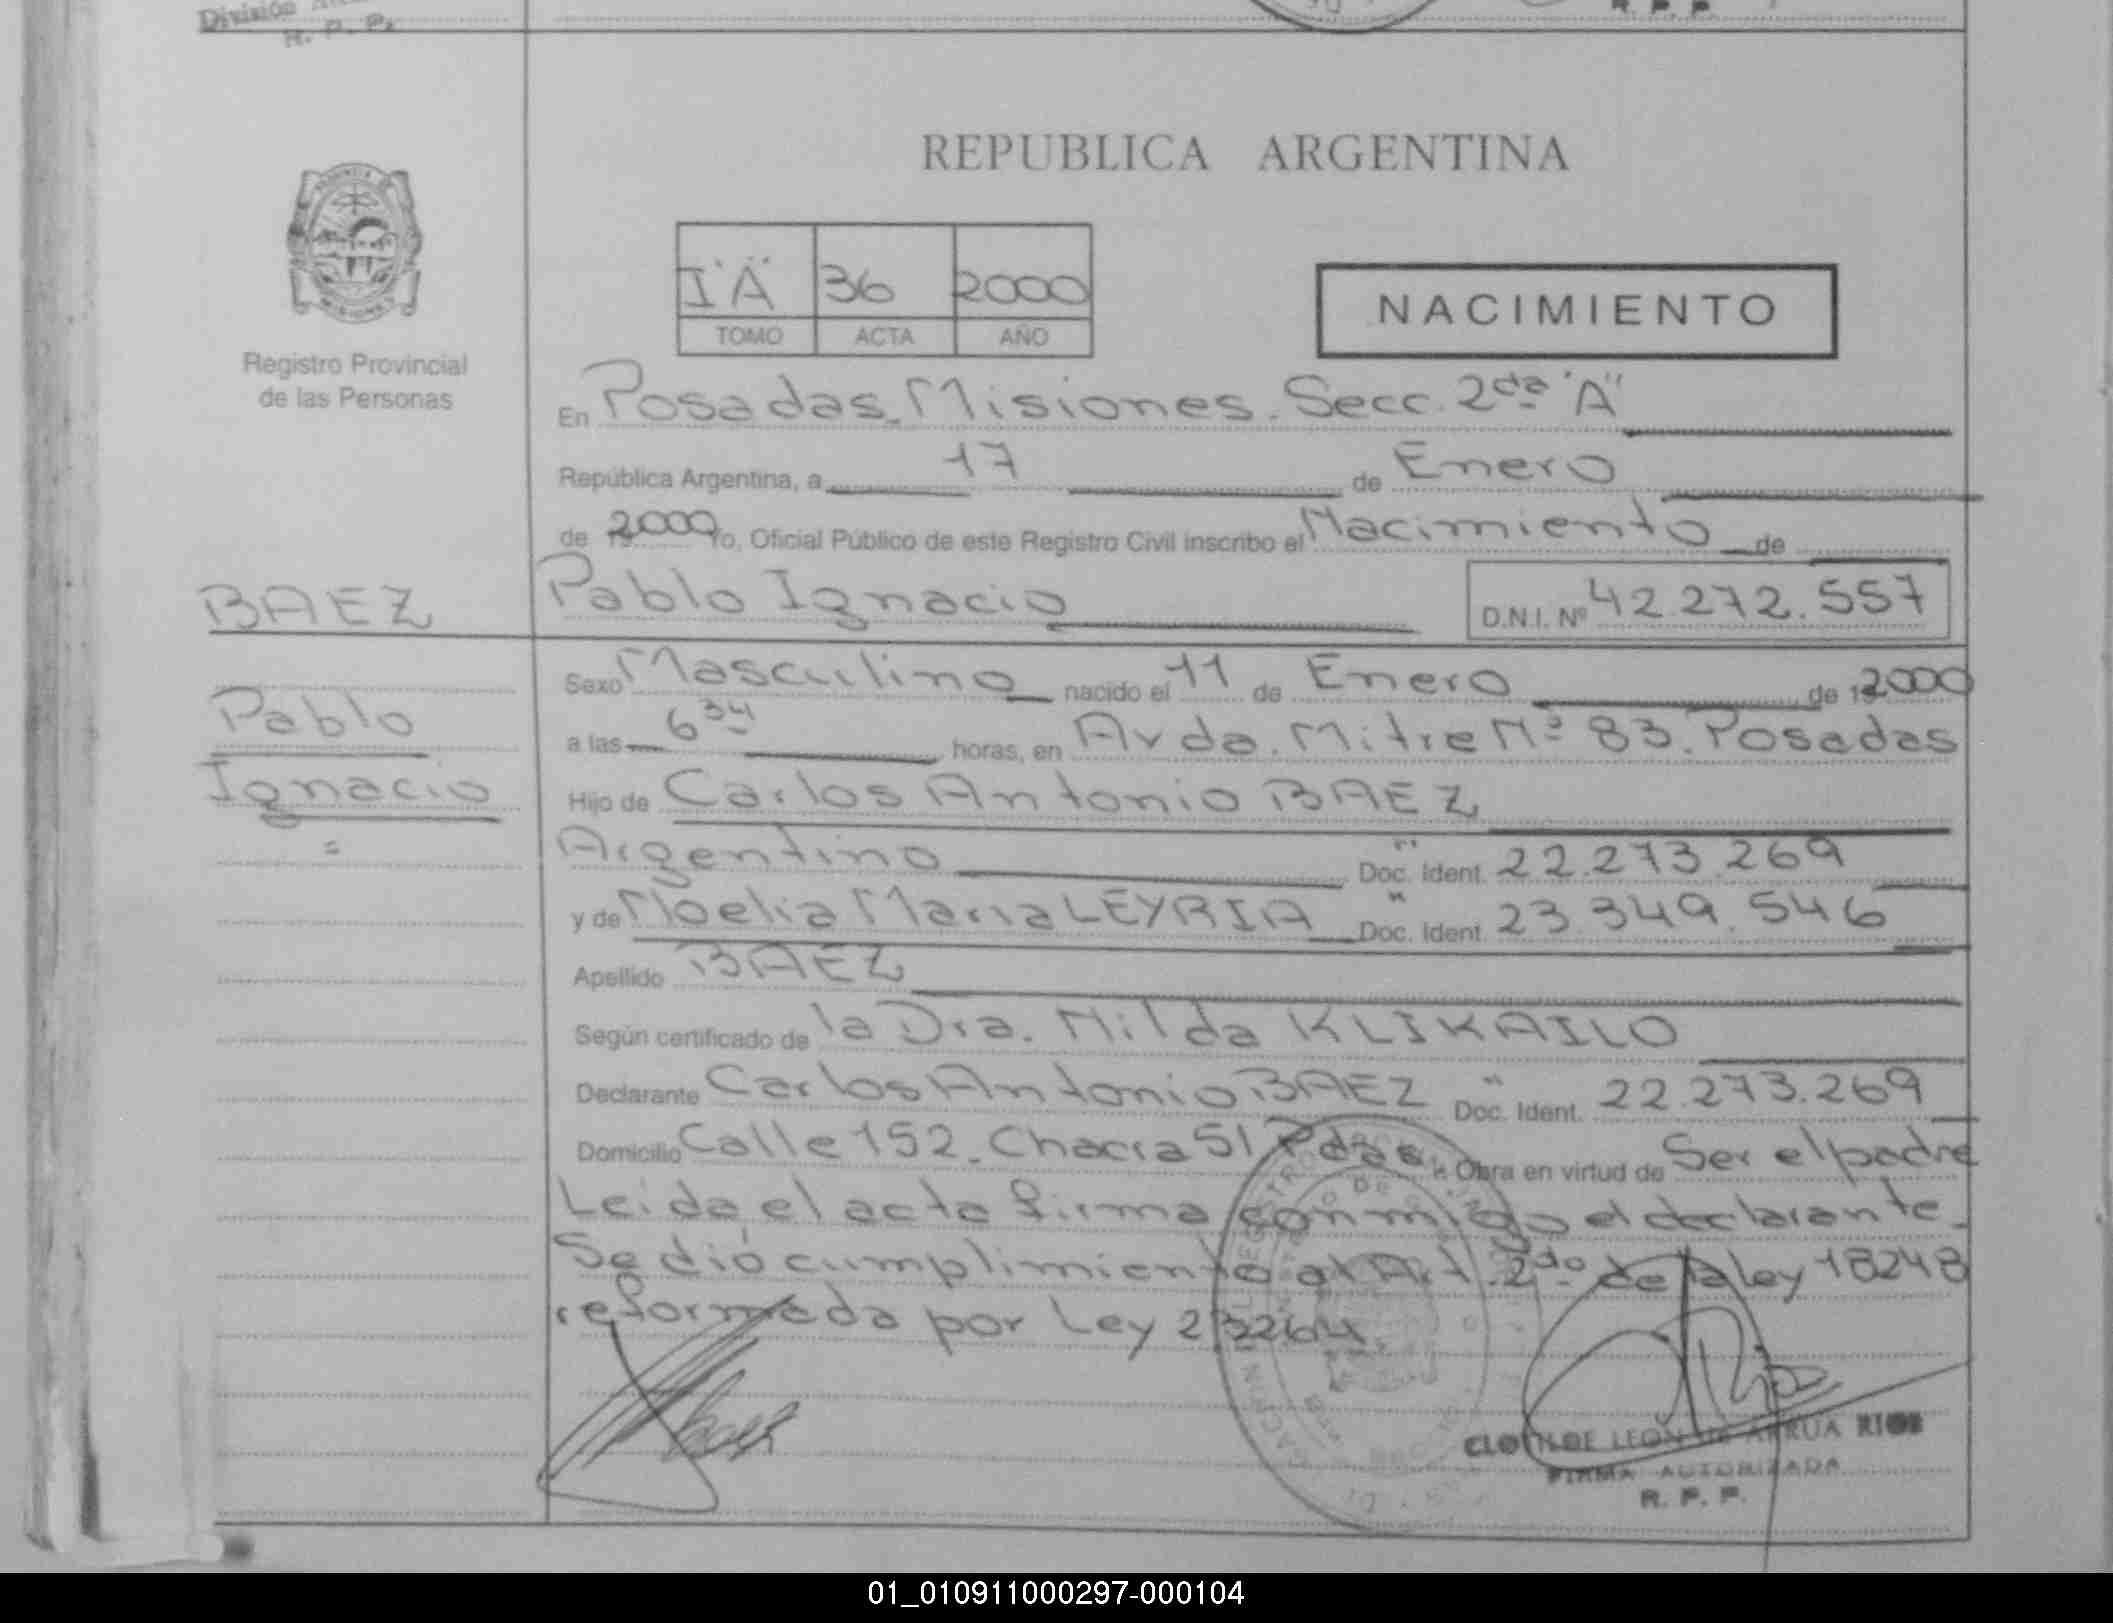 División
R. P. P.
R. P. P.
REPUBLICA ARGENTINA
PROVINCIA DE
MISIONES
Registro Provincial
de las Personas
I "A" 36 2000
TOMO ACTA AÑO
NACIMIENTO
En Posadas. Misiones. Secc. 2da "A"
República Argentina, a 17 de Enero
de 2000 Yo, Oficial Público de este Registro Civil inscribo el Nacimiento de
BAEZ Pablo Ignacio D.N.I. Nº 42.272.557
Pablo
Ignacio
Sexo Masculino nacido el 11 de Enero de 2000
a las 6 34 horas, en Avda. Mitre Nº 83. Posadas
Hijo de Carlos Antonio BAEZ
Argentino Doc. Ident. 22.273.269
y de Noelia Maria LEYRIA Doc. Ident. 23.349.546
Apellido BAEZ
Según certificado de la Dra. Nilda KLIKAILO
Declarante Carlos Antonio BAEZ " Doc. Ident. 22.273.269
Domicilio Calle 152. Chacra 51 Pdas. Obra en virtud de Ser el padre
Leida el acta firma conmigo el declarante.
Se dió cumplimiento al Art. 2do de la ley 18248
reformada por Ley 23264.
Baez
CLOTILDE LEON DE ARRUA RIOS
FIRMA AUTORIZADA
R. P. P.
01_010911000297-000104